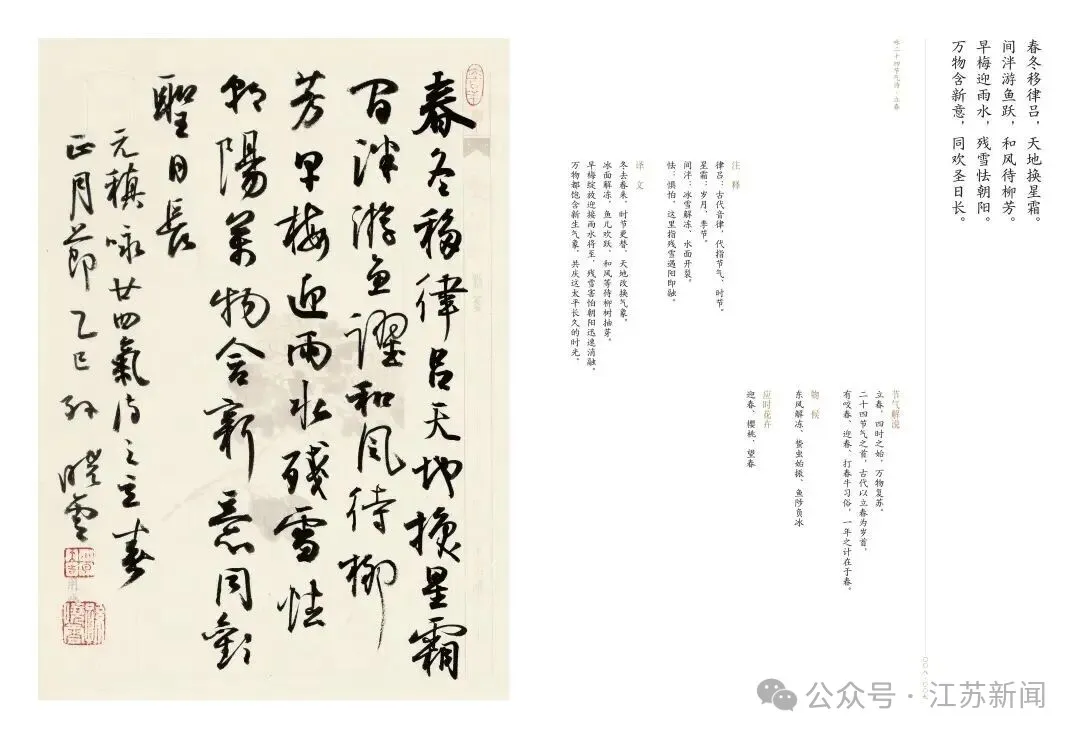 春冬移律吕，天地换星霜。
间泮游鱼跃，和风待柳芳。
早梅迎雨水，残雪怯朝阳。
万物含新意，同欢圣日长。
咏二十四节气诗·立春
节气解说
立春，四时之始，万物复苏。
二十四节气之首，古代以立春为岁首，
有咬春、迎春、打春牛习俗，一年之计在于春。
物候
东风解冻、蛰虫始振、鱼陟负冰
应时花卉
迎春、樱桃、望春
注释
律吕：古代音律，代指节气、时节。
星霜：岁月、季节。
间泮：冰雪解冻、水面开裂。
怯：惧怕，这里指残雪遇阳即融。
译文
冬去春来，时节更替，天地改换气象，
冰面解冻，鱼儿欢跃，和风等待柳树抽芽。
早梅绽放迎接雨水将至，残雪害怕朝阳迅速消融。
万物都饱含新生气象，共庆这太平长久的时光。
春冬移律呂天地換星霜
间泮游魚躍和風待柳
芳早梅迎雨水殘雪怯
朝陽萬物含新意同歡
聖日長
元稹咏廿四氣诗之立春
正月節乙巳孙曉雲
公众号·江苏新闻